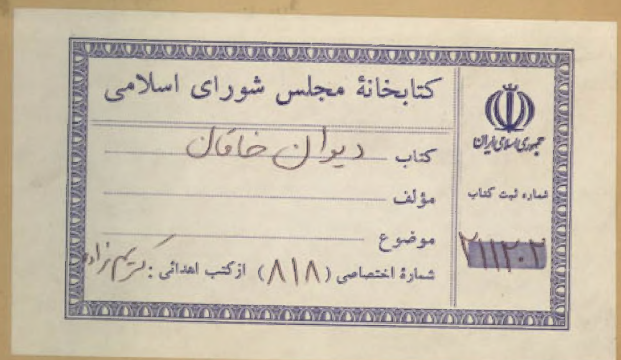 کتابخانهٔ مجلس شورای اسلامی
کتاب دیوان خاقان
مؤلف
موضوع
شمارهٔ اختصاصی (۸۱۸) از کتب اهدائی : کریم‌زاده
جمهوری اسلامی ایران
شماره ثبت کتاب
۲۱۱۲۰۲